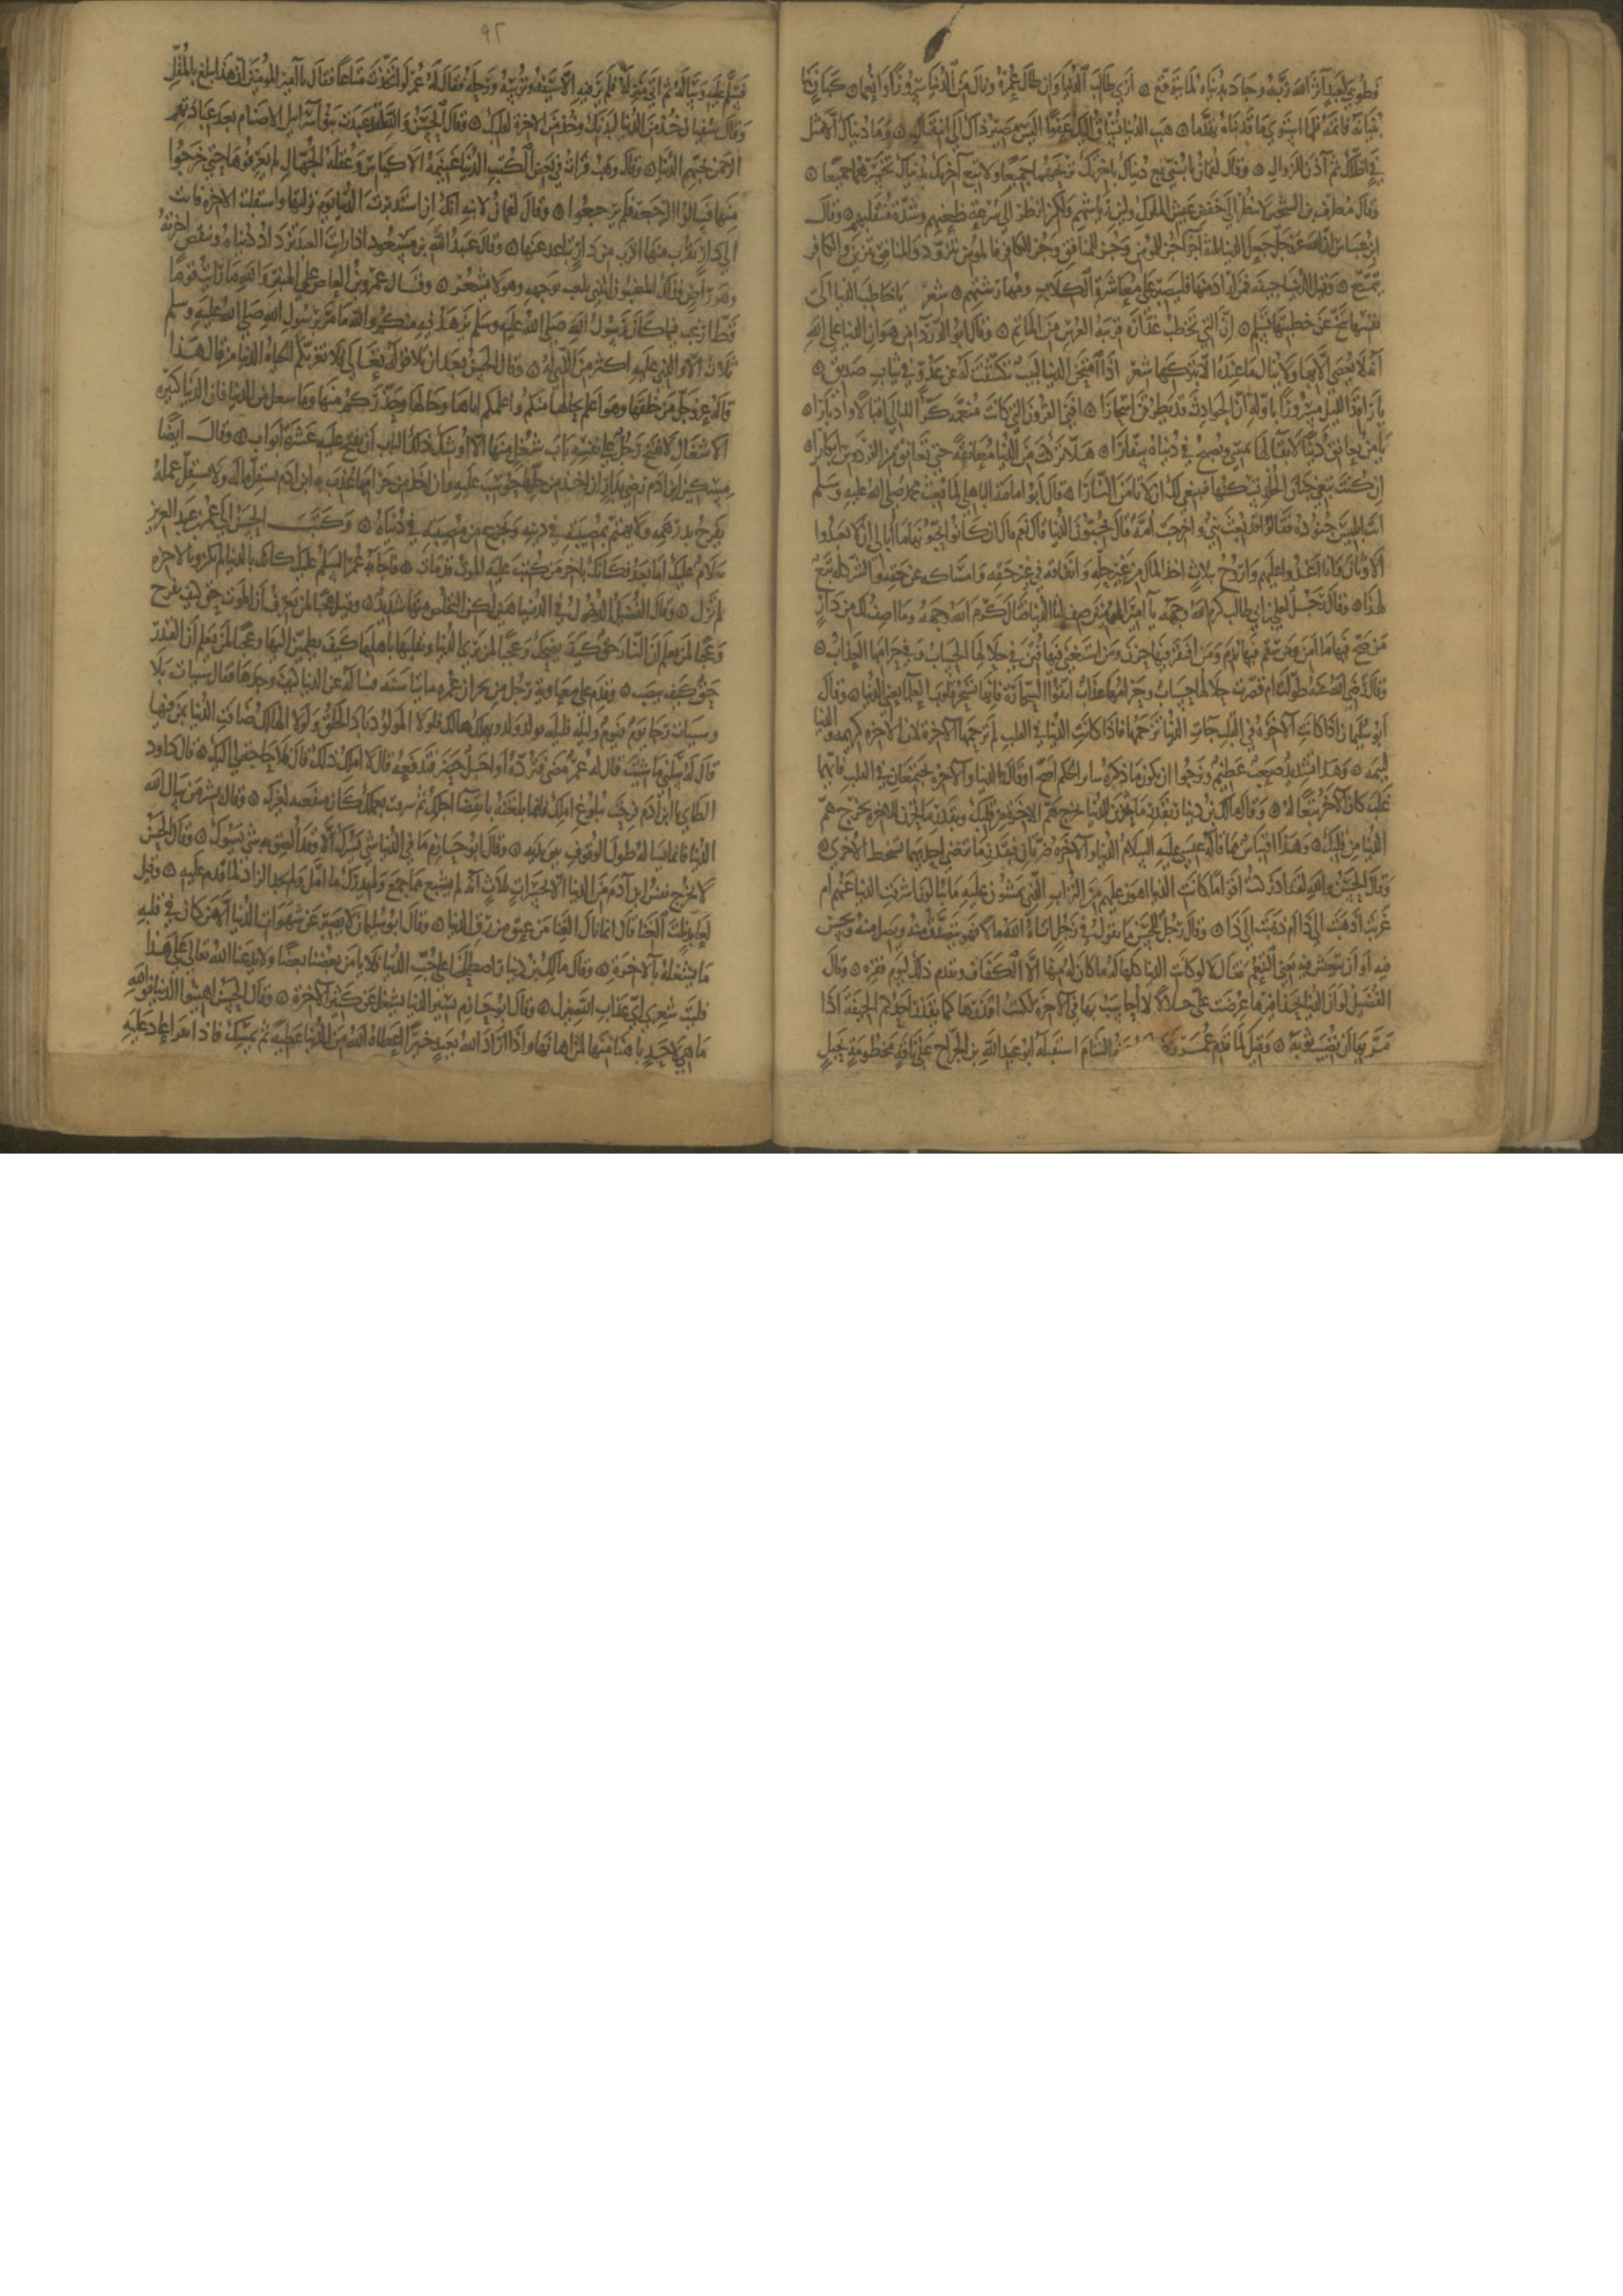 فطوبى لعبد آثر الله ربه وجاد بدنياه لما يتوقع ۞ أرى طالب الدنيا وان طال عمره ونال من الدنيا سرورا وانعما ۞ كبان بنى
بنيانه فاتمه فلما استوى ما قد بناه تهدما ۞ هب الدنيا تساق اليك عفوا اليس مصير ذاك الى انتقال ۞ وما دنياك الا مثل
فيء اظلك ثم آذن بالزوال ۞ وقال لقمان لابنه يا بني بع دنياك باخرتك تربحهما جميعا ولا تبع آخرتك بدنياك تخسرهما جميعا ۞
وقال مطرف بن الشخير لا تنظر الى خفض عيش الملوك ولين رياشهم ولكن انظر الى سرعة ظعنهم وشدة منقلبهم ۞ وقال
ابن عباس ان الله عز وجل جعل الدنيا ثلاثة اجزاء جزء للمؤمن وجزء للمنافق وجزء للكافر فالمؤمن يتزود والمنافق يتزين والكافر
يتمتع ۞ وقيل الدنيا جيفة فمن اراد منها فليصبر على معاشرة الكلاب شعر يا خاطب الدنيا الى
نفسها تنح عن خطبتها تسلم ۞ ان التي تخطب غدارة قريبة العرس من الماتم ۞ وقال ابو الدرداء من هوان الدنيا على الله
انه لا يعصى الا فيها ولا ينال ما عنده الا بتركها شعر اذا امتحن الدنيا لبيب تكشفت له عن عدو في ثياب صديق ۞
يا راقد الليل مسرورا باوله ان الحوادث قد يطرقن اسحارا ۞ افنى القرون التي كانت منعمة كر الليالي اقبالا وادبارا ۞
يا من يعانق دنيا لا بقاء لها يمسي ويصبح في دنياه سفارا ۞ هلا تركت من الدنيا معانقة حتى تعانق في الفردوس ابكارا ۞
ان كنت تبغي جنان الخلد تسكنها فينبغي لك ان لا تامن النارا ۞ قال ابو امامة الباهلي لما بعث محمد صلى الله عليه وسلم
اتت ابليس جنوده فقالوا قد بعث نبي واخرجت امة قال يحبون الدنيا قالوا نعم قال ان كانوا يحبونها ما ابالي ان لا يعبدوا
الاوثان وانا اغدو عليهم واروح بثلاث اخذ المال من غير حقه وانفاقه في غير حقه وامساكه عن حقه والشر كله تبع
لهذا ۞ وقال رجل لعلي بن ابي طالب كرم الله وجهه يا امير المؤمنين صف لنا الدنيا فقال كرم الله وجهه وما اصف لك من دار
من صح فيها ما امن ومن سقم فيها ندم ومن افتقر فيها حزن ومن استغنى فيها فتن في حلالها الحساب وفي حرامها العذاب ۞
وقال رضي الله عنه طولت ام قصرت حلالها حساب وحرامها عذاب اتقوا السحارة فانها تسحر قلوب العلماء يعني الدنيا ۞ وقال
ابو سليمان اذا كانت الآخرة في القلب جاءت الدنيا تزحمها فاذا كانت الدنيا في القلب لم تزحمها الآخرة لان الآخرة كريمة والدنيا
لئيمة ۞ وهذا تشديد عظيم ونرجوا ان يكون ما ذكره سيار بن الحكم اصح اذ قال الدنيا والآخرة يجتمعان في القلب فايهما
غلب كان الآخر تبعا له ۞ وقال مالك بن دينار بقدر ما تحزن للدنيا يخرج هم الآخرة من قلبك وبقدر ما تحزن للآخرة يخرج هم
الدنيا من قلبك ۞ وهذا اقتباس مما قاله عيسى عليه السلام الدنيا والآخرة ضرتان فبقدر ما ترضي احديهما تسخط الاخرى ۞
وقال الحسن والله لقد ادركت اقواما كانت الدنيا اهون عليهم من التراب الذي تمشون عليه ما يبالون اشرقت الدنيا عندهم ام
غربت اذهبت الى ذا ام ذهبت الى ذا ۞ وقال رجل للحسن ما تقول في رجل اتاه الله مالا فهو يتصدق منه ويصل منه ويحسن
فيه أو أن يتعيش فيه يعني التنعم فقال لا لو كانت الدنيا كلها له ما كان له منها الا الكفاف وتقدم ذلك ليوم فقره ۞ وقال
الفضيل لو ان الدنيا بحذافيرها عرضت علي حلالا لا احاسب بها في الآخرة لكنت اقذرها كما يقذر احدكم الجيفة اذا
مر بها ان تصيب ثوبه ۞ وقيل لما قدم عمر الشام استقبله ابو عبيدة بن الجراح على ناقة مخطومة بحبل
٩٢
فسلم عليه وساله ثم اتى منزله فلم ير فيه الا سيفه وترسه ورحله فقال له عمر لو اتخذت متاعا فقال يا امير المؤمنين ان هذا يبلغنا المقيل
وقال سفيان خذ من الدنيا لبدنك وخذ من الآخرة لقلبك ۞ وقال الحسن والله لقد عبدت بنو اسرائيل الاصنام بعد عبادتهم
الرحمن بحبهم الدنيا ۞ وقال وهب قرات في بعض الكتب الدنيا غنيمة الاكياس وغفلة الجهال لم يعرفوها حتى خرجوا
منها فسالوا الرجعة فلم يرجعوا ۞ وقال لقمان لابنه انك استدبرت الدنيا من يوم نزلتها واستقبلت الآخرة فانت
الى دار تقرب منها اقرب من دار تباعد عنها ۞ وقال عبد الله بن مسعود اذا رايت العبد تزداد دنياه وتنقص آخرته
وهو راض فذلك المغبون الذي يلعب بوجهه وهو لا يشعر ۞ وقال عمرو بن العاص على المنبر والله ما رايت قوما
قط ارغب فيما كان رسول الله صلى الله عليه وسلم يزهد فيه منكم والله ما مر برسول الله صلى الله عليه وسلم
ثلاث الا والذي عليه اكثر من الذي له ۞ وقال الحسن بعد ان تلا قوله تعالى فلا تغرنكم الحياة الدنيا من قال هذا
قاله عز وجل من خلقها وهو اعلم بها اياكم وما شغل من الدنيا فان الدنيا كثيرة
الاشغال لا يفتح رجل على نفسه باب شغل منها الا اوشك ذلك الباب ان يفتح عليه عشرة ابواب ۞ وقال ايضا
مسكين ابن آدم رضي بدار ان اخذ من حلها حوسب عليه وان اخذ من حرامها عذب به ابن آدم يستقل ماله ولا يستقل عمله
يفرح بمصيبته في دينه ويجزع من مصيبته في دنياه ۞ وكتب الحسن الى عمر بن عبد العزيز
سلام عليك اما بعد فكانك باخر من كتب عليه الموت قد مات ۞ فاجابه عمر السلام عليك كانك بالدنيا لم تكن وبالآخرة
لم تزل ۞ وقال الفضيل الدخول في الدنيا هين لكن التخلص منها شديد ۞ وقيل عجبا لمن يعرف ان الموت حق كيف يفرح
وعجبا لمن يعلم ان النار حق كيف يضحك وعجبا لمن يرى الدنيا وتقلبها باهلها كيف يطمئن اليها وعجبا لمن يعلم ان القدر
حق كيف ينصب ۞ وقدم على معاوية رجل من نجران عمره مائتا سنة فساله عن الدنيا كيف وجدها فقال سنيات بلاء
وسنيات رخاء يوم فيوم وليلة فليلة يولد ولد ويهلك هالك فلولا المولود باد الخلق ولولا الهالك ضاقت الدنيا بمن فيها
قال له سلني ما شئت قال له عمر مضى فترده او اجل حضر فتدفعه قال لا املك ذلك قال فلا حاجة لي اليك ۞ قال داود
الطائي يا ابن آدم فرحت ببلوغ املك وانما بلغته بانقضاء اجلك ثم سوفت بعملك كان منفعته لغيرك ۞ وقال بشر من سال الله
الدنيا فانما يساله طول الوقوف بين يديه ۞ وقال ابو حازم ما في الدنيا شيء يسرك الا وقد الصق به شيء يسوءك ۞ وقال الحسن
لا تخرج نفس ابن آدم من الدنيا الا بحسرات ثلاث انه لم يشبع مما جمع ولم يدرك ما امل ولم يحسن الزاد لما قدم عليه ۞ وقيل
لعابد نلت الغنا قال انما نال الغنا من عتق من رق الدنيا ۞ وقال ابو سليمان لا يصبر عن شهوات الدنيا الا من كان في قلبه
ما يشغله بالآخرة ۞ وقال مالك بن دينار اصطلحنا على حب الدنيا فلا يامر بعضنا بعضا ولا يدعنا الله تعالى على هذا
فليت شعري اي عذاب الله ينزل ۞ وقال ابو حازم يسير الدنيا يشغل عن كثير الآخرة ۞ وقال الحسن اهينوا الدنيا فوالله
ما هي لاحد باهنا منها لمن اهانها واذا اراد الله بعبد خيرا اعطاه الله من الدنيا عطية ثم يمسك فاذا نفد اعاد عليه